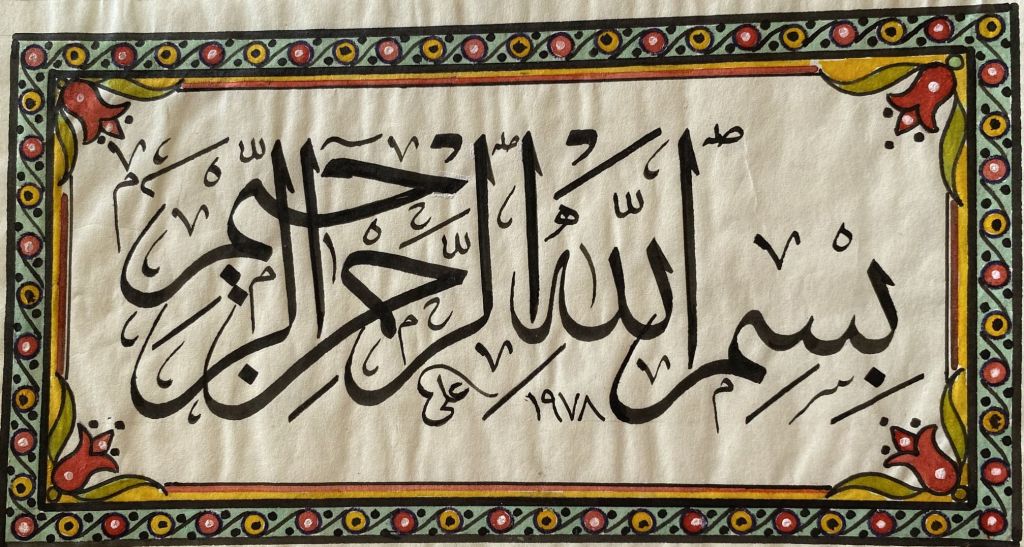 بِسْمِ اللّٰهِ الرَّحْمٰنِ الرَّحِيْمِ
علی ١٩٧٨